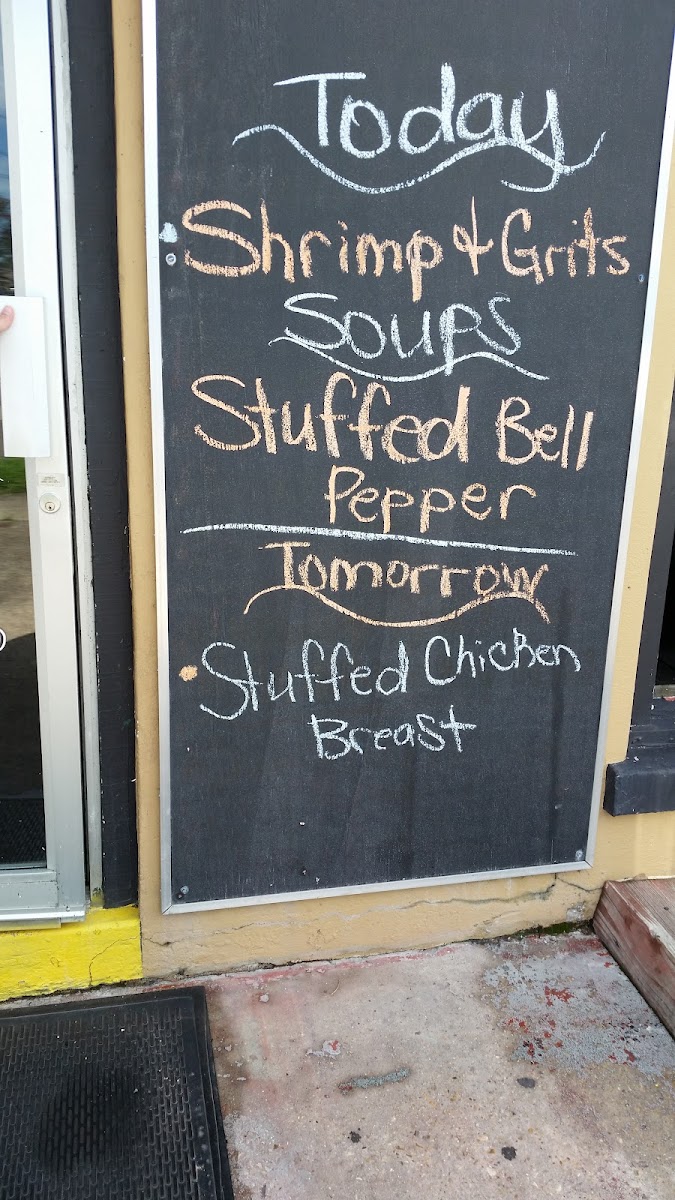 Today
Shrimp & Grits
Soups
Stuffed Bell
Pepper
Tomorrow
Stuffed Chicken
Breast